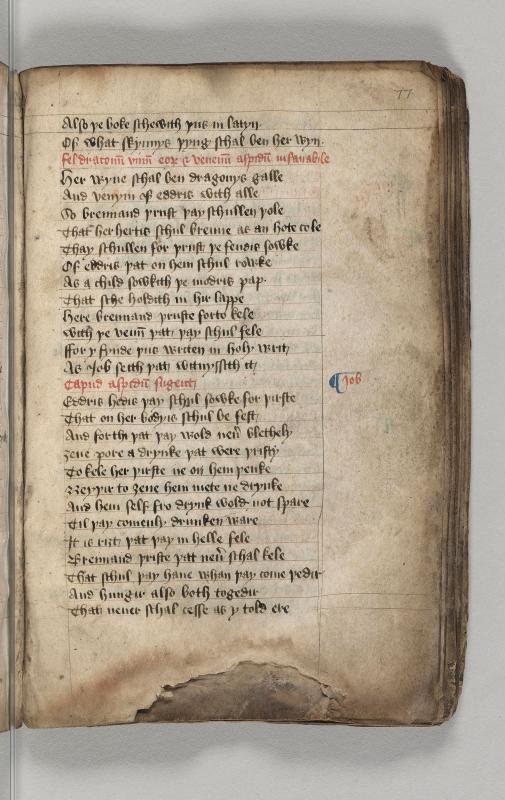 77
Also þe boke schewith þus in latyn
Of what skynnys þyng schal ben her wyn
Fel draconū vinū eoꝝ & venenū aspidū insanabile
Her wyne schal ben dragonys galle
And venym of eddris with alle
So brennand þrust þay schullen þole
That her hertis schul brenne as an hote cole
Thay schullen for þrust þe fendis sowke
Of eddris þat on hem schul rowke
As a child sowkith þe modris pap
That sche holdith in hir lappe
Here brennand þruste forto kele
With þe venī þat þay schul fele
Ffor y fynde þus writen in holy writ
As Job seith þat witnyssith it
Capud aspidū sugent
¶ Job
Eddris hedis þay schul sowke for þirste
That on her bodyis schul be fest
And forthi þat þay wold neū blethely
Ȝeue pore a drynke þat were þristy
To kele her þirste ne on hem þenke
Neyþir to ȝeue hem mete ne drynke
And hem self fro drynk wold not spare
Til þay comenly drunken ware
It is riȝt þat þay in helle fele
Brennand þriste þat neū schal kele
That schul þay haue whan þay come þedir
And hungir also both togedir
That neuer schal cesse as y told ere